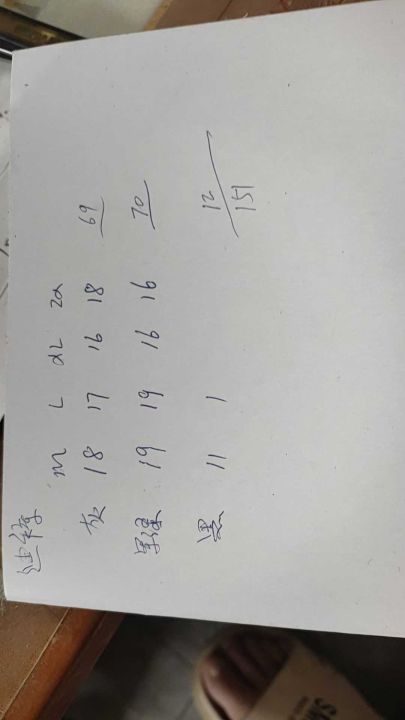 连锋
m L XL 2X
灰 18 17 16 18 69
军绿 19 19 16 16 70
黑 11 1 12
151